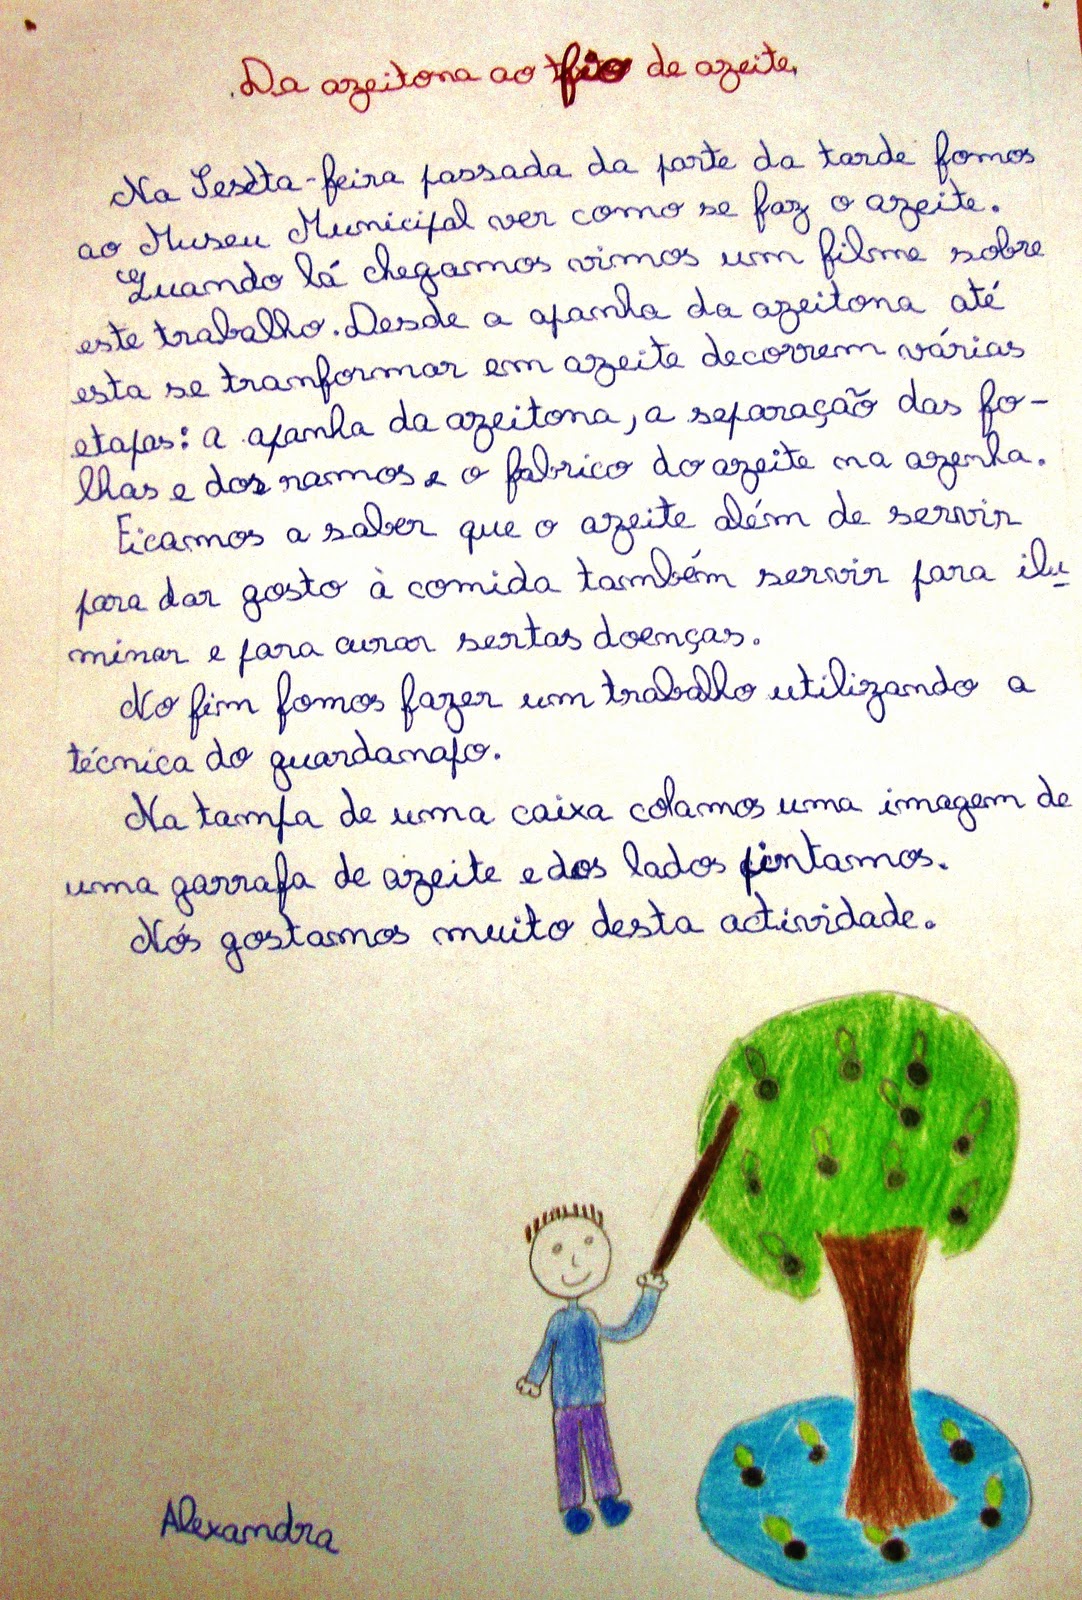 Da azeitona ao fio de azeite.
Na Sexta-feira passada da parte da tarde fomos
ao Museu Municipal ver como se faz o azeite.
Quando lá chegamos vimos um filme sobre
este trabalho. Desde a apanha da azeitona até
esta se tranformar em azeite decorrem várias
etapas: a apanha da azeitona, a separação das fo-
lhas e dos ramos e o fabrico do azeite na azenha.
Ficamos a saber que o azeite além de servir
para dar gosto à comida também servir para ilu
minar e para curar sertas doenças.
No fim fomos fazer um trabalho utilizando a
técnica do guardanapo.
Na tampa de uma caixa colamos uma imagem de
uma garrafa de azeite e dos lados pintamos.
Nós gostamos muito desta actividade.
Alexandra